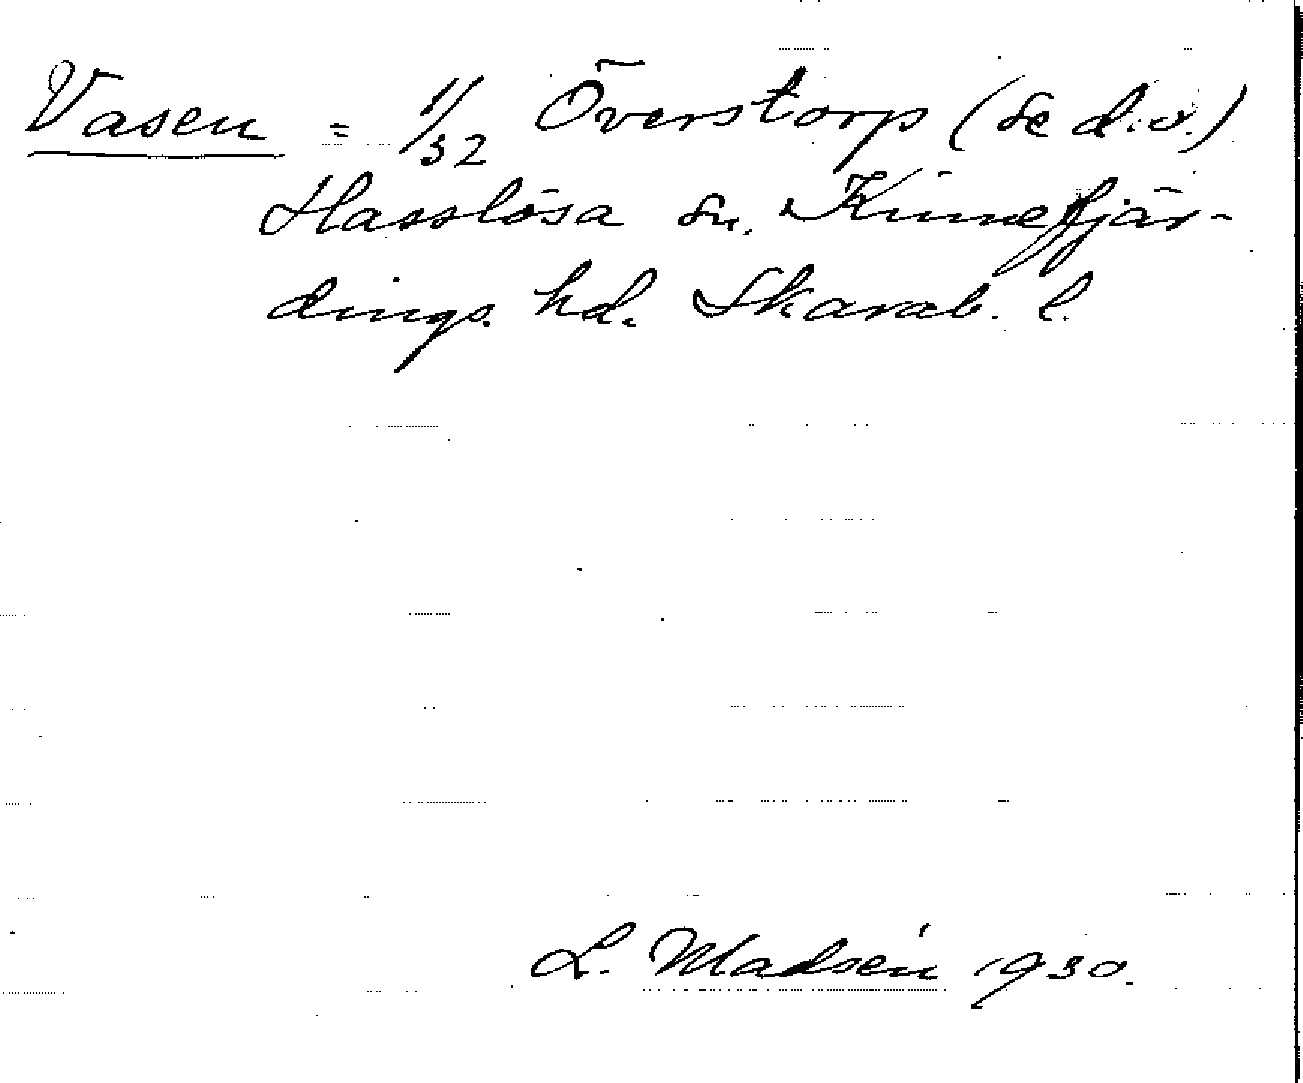 Vasen = 1/32 Överstorp (se d.o.)
Hasslösa sn. Kinnefjär-
dings. hd. Skarab. l.
L. Madsén 1930.